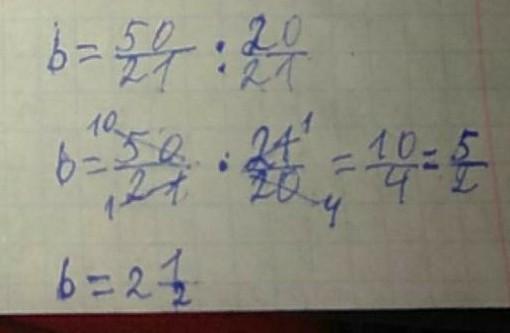 b = 50/21 : 20/21
b = 50/21 · 21/20 = 10/4 = 5/2
b = 2 1/2